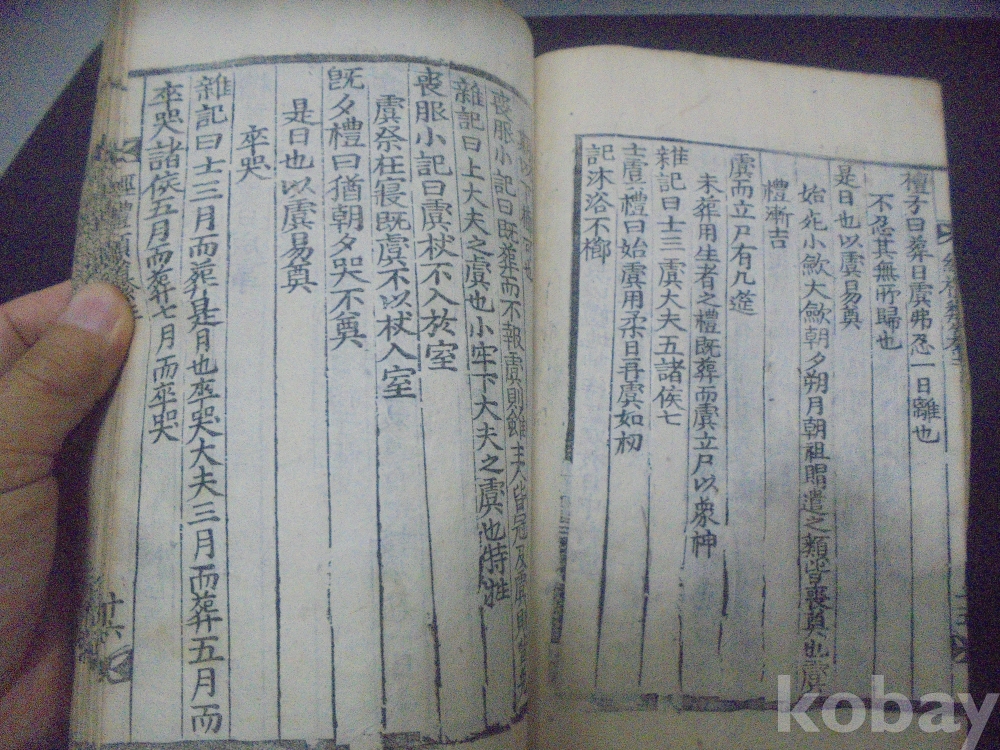 檀弓曰葬日虞弗忍一日離也
不忍其無所歸也
是日也以虞易奠
始死小斂大斂朝夕朔月朝祖賵遣之類皆喪奠也虞
禮漸吉
虞而立尸有几筵
未葬用生者之禮既葬而虞立尸以象神
雜記曰士三虞大夫五諸侯七
士虞禮曰始虞用柔日再虞如初
記沐浴不櫛
喪服小記曰既葬而不報虞則雖主人皆冠及虞則皆免
雜記曰上大夫之虞也小牢下大夫之虞也特牲
喪服小記曰虞杖不入於室
虞祭在寢既虞不以杖入室
既夕禮曰猶朝夕哭不奠
是日也以虞易奠
卒哭
雜記曰士三月而葬是月也卒哭大夫三月而葬五月而
卒哭諸侯五月而葬七月而卒哭
十六
kobay